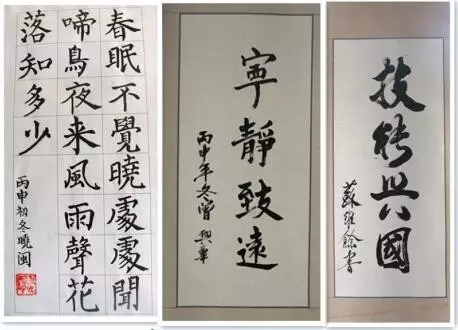 春眠不覺曉處處聞
啼鳥夜来風雨聲花
落知多少
丙申初冬曉閩
寧靜致遠
丙申年冬
技能兴國
蘇維餘書